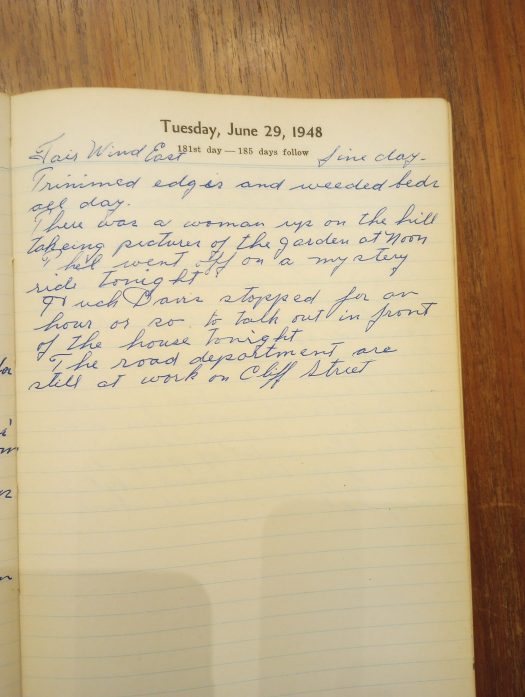 Tuesday, June 29, 1948
181st day — 185 days follow
Fair Wind East Fine day.
Trimmed edges and weeded beds
all day.
There was a woman up on the hill
takeing pictures of the garden at noon
went off on a mystery
ride tonight
Davis stopped for an
hour or so to talk out in front
of the house tonight
The road department are
still at work on Cliff Street